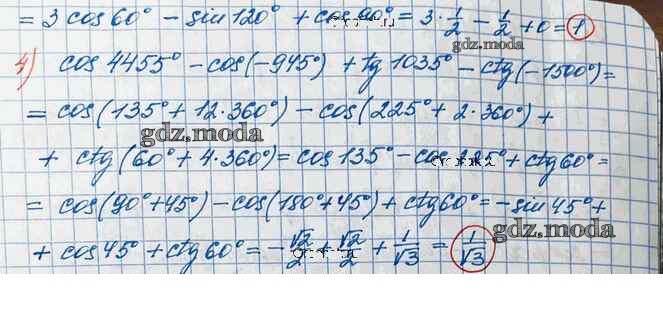 = 3 cos 60° − sin 120° + cos 90° = 3 · 1/2 − 1/2 + 0 = 1
gdz.moda
4) cos 4455° − cos(−945°) + tg 1035° − ctg(−1500°) =
= cos(135° + 12·360°) − cos(225° + 2·360°) +
gdz.moda
+ ctg(60° + 4·360°) = cos 135° − cos 225° + ctg 60° =
= cos(90° + 45°) − cos(180° + 45°) + ctg 60° = − sin 45° +
gdz.moda
+ cos 45° + ctg 60° = − √2/2 + √2/2 + 1/√3 = 1/√3